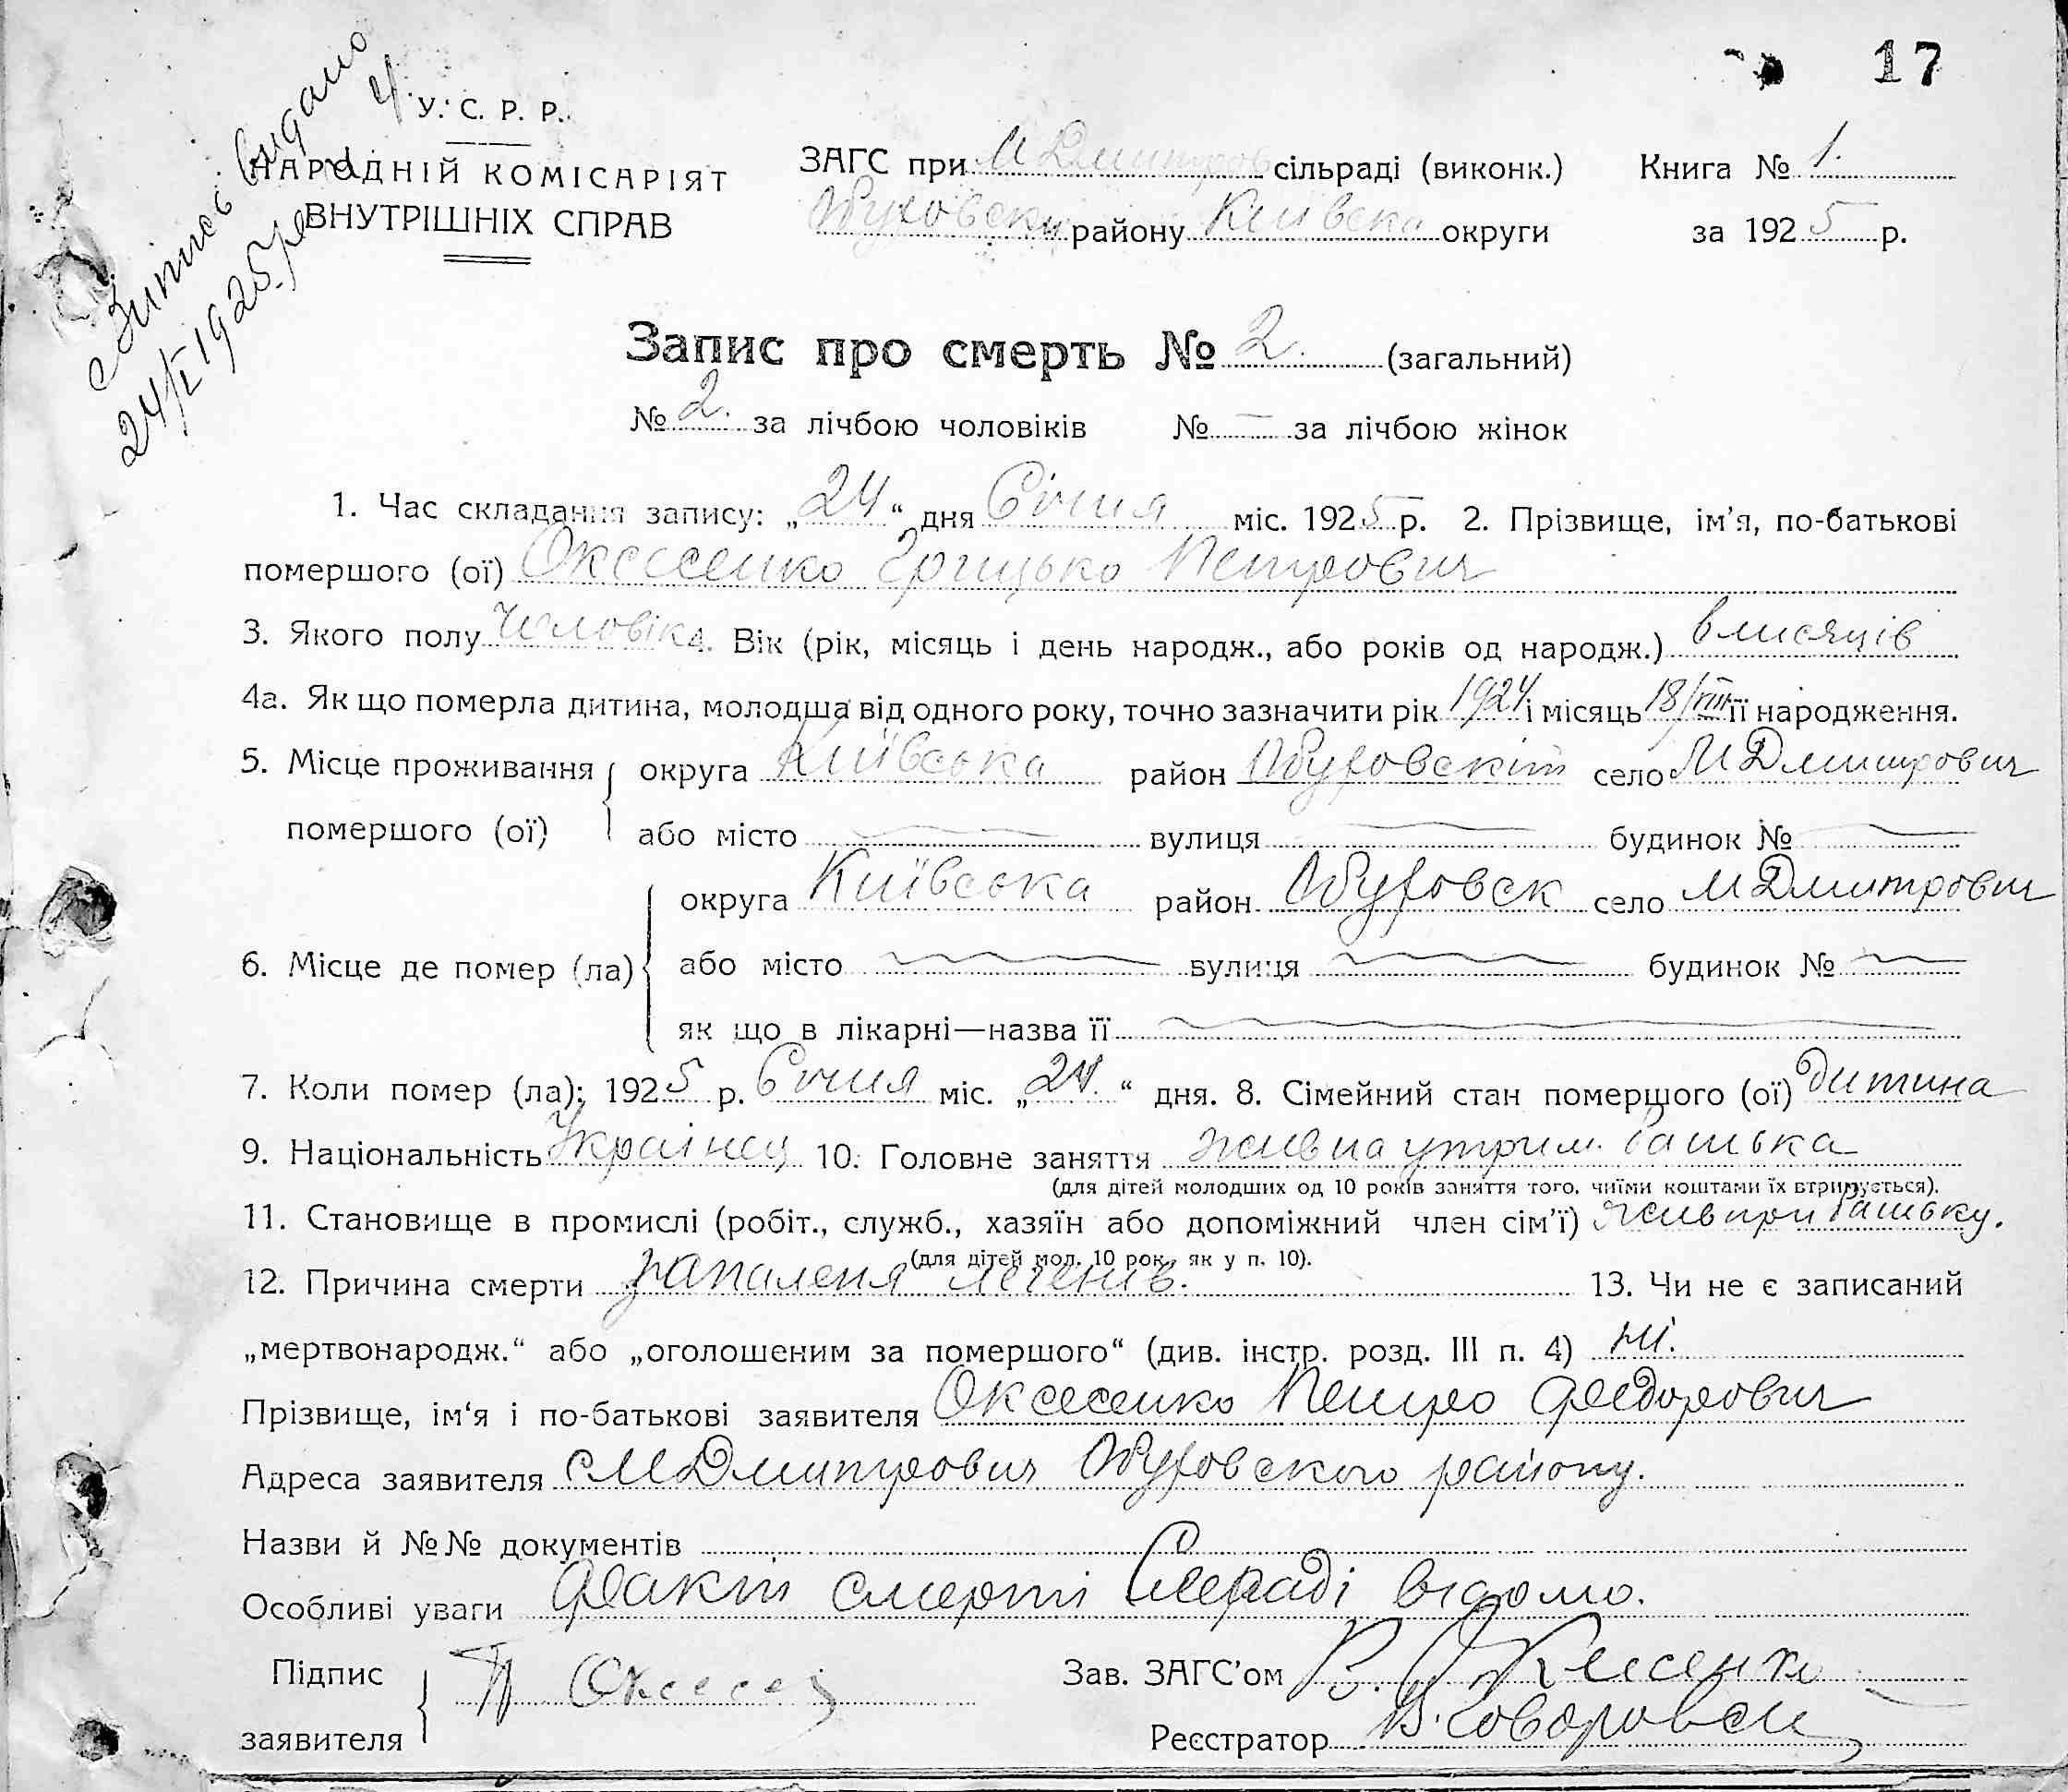 17
Випись видано
24/I 1925 р.
У. С. Р. Р.
НАРОДНІЙ КОМІСАРІЯТ
ВНУТРІШНІХ СПРАВ
ЗАГС при М Дмитров сільраді (виконк.) Книга № 1.
Обуховськ району Київська округи за 1925 р.
Запис про смерть № 2. (загальний)
№ 2. за лічбою чоловіків № — за лічбою жінок
1. Час складання запису: „24“ дня Січня міс. 1925 р. 2. Прізвище, ім’я, по-батькові
помершого (ої) Оксесенко Грицько Петрович
3. Якого полу Чоловік 4. Вік (рік, місяць і день народж., або років од народж.) 6 мисяців
4а. Як що померла дитина, молодша від одного року, точно зазначити рік 1924 і місяць 18/VIII її народження.
5. Місце проживання округа Київська район Обуховскій село М Дмитрович
помершого (ої) або місто вулиця будинок №
округа Київська район Обуховск село М Дмитрович
6. Місце де помер (ла) або місто вулиця будинок №
як що в лікарні—назва її
7. Коли помер (ла): 1925 р. Січня міс. „24.“ дня. 8. Сімейний стан помершого (ої) Дитина
9. Національність Украінец 10. Головне заняття жив на утрим. батька
(для дітей молодших од 10 років заняття того, чиїми коштами їх втримується).
11. Становище в промислі (робіт., служб., хазяїн або допоміжний член сім’ї) жив при батьку.
(для дітей мол. 10 рок., як у п. 10).
12. Причина смерти запаленя легенів. 13. Чи не є записаний
„мертвонародж.“ або „оголошеним за помершого“ (див. інстр. розд. III п. 4) ні.
Прізвище, ім‘я і по-батькові заявителя Оксесенко Петро Федорович
Адреса заявителя с М Дмитрович Обуховского району.
Назви й №№ документів
Особливі уваги Факт смерті Сельраді відомо.
Підпис П Оксесе Зав. ЗАГС’ом В.
заявителя Реєстратор В.